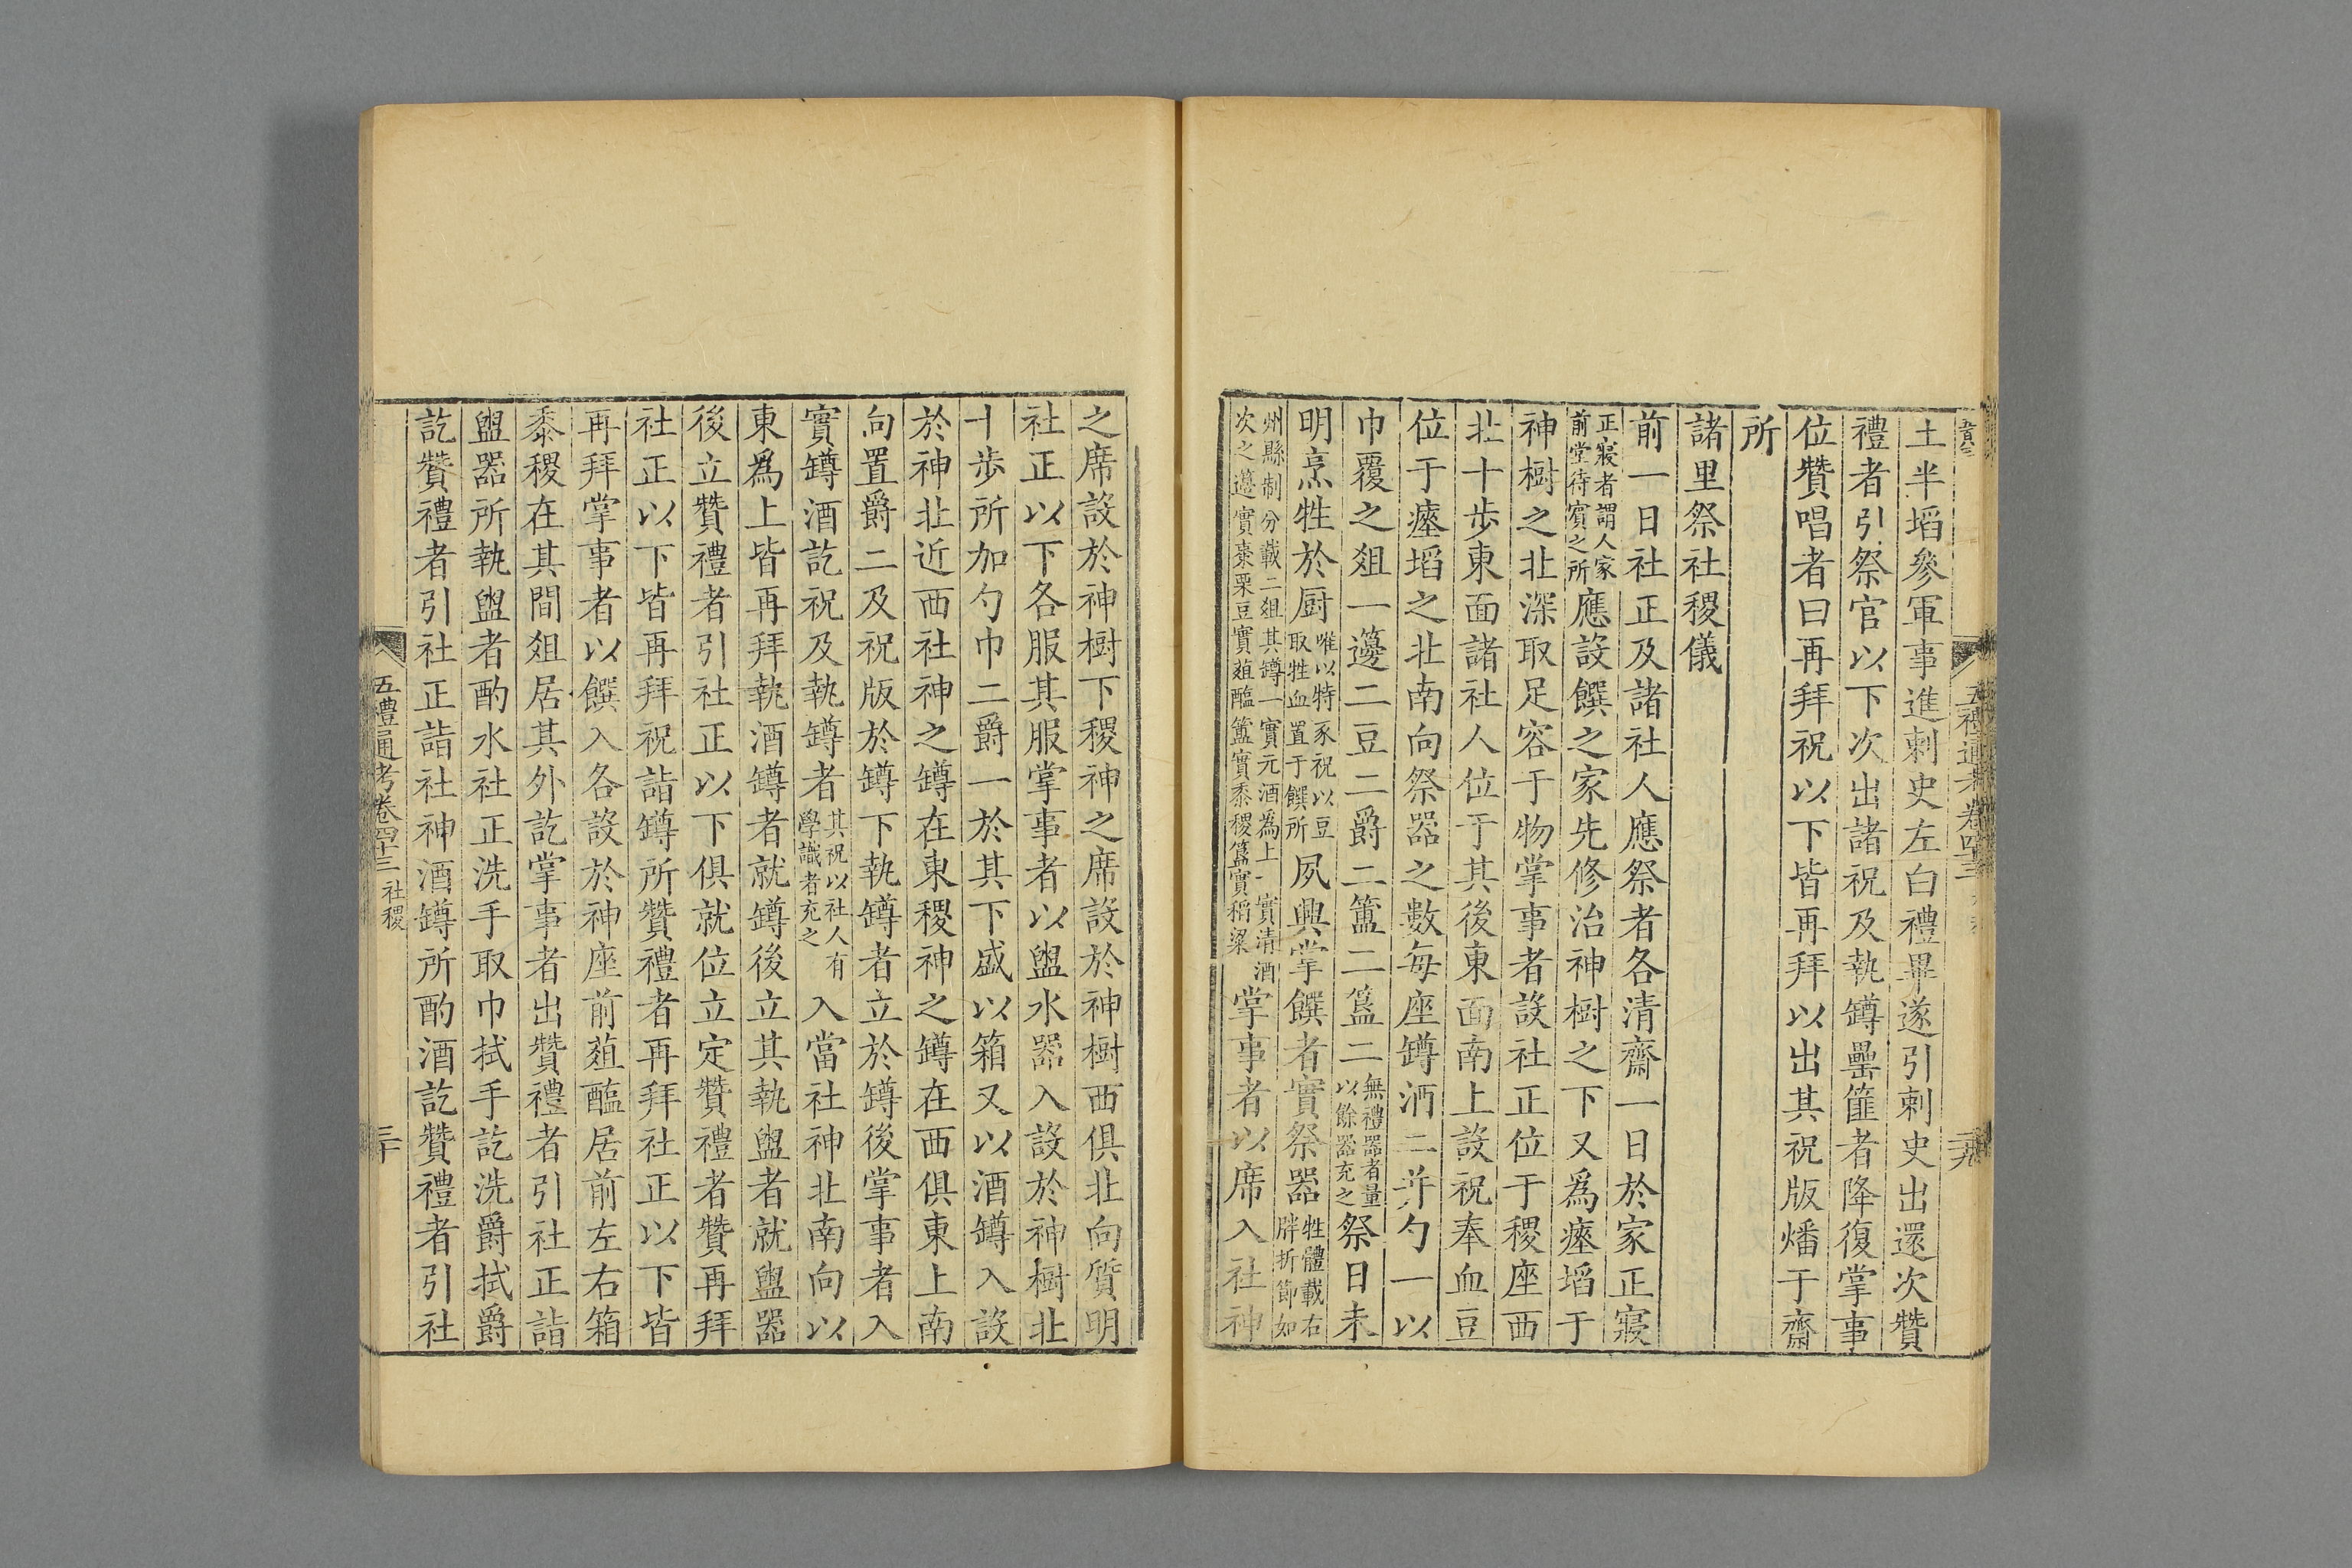 土半埳參軍事進刺史左白禮畢遂引刺史出還次贊
禮者引祭官以下次出諸祝及執罇罍篚者降復掌事
位贊唱者曰再拜祝以下皆再拜以出其祝版燔于齋
所
諸里祭社稷儀
前一日社正及諸社人應祭者各清齋一日於家正寢
正寢者謂人家前堂待賓之所應設饌之家先修治神樹之下又爲瘞埳于
神樹之北深取足容于物掌事者設社正位于稷座西
北十步東面諸社人位于其後東面南上設祝奉血豆
位于瘞埳之北南向祭器之數每座罇酒二并勺一以
巾覆之俎一籩二豆二爵二簠二簋二無禮器者量以餘器充之祭日未
明烹牲於厨唯以特豕祝以豆取牲血置于饌所夙興掌饌者實祭器牲體載右胖折節如
州縣制分載二俎其罇一實元酒為上一實清酒次之籩實棗栗豆實葅醢簠實黍稷簋實稻粱掌事者以席入社神
之席設於神樹下稷神之席設於神樹西俱北向質明
社正以下各服其服掌事者以盥水器入設於神樹北
十步所加勺巾二爵一於其下盛以箱又以酒罇入設
於神北近西社神之罇在東稷神之罇在西俱東上南
向置爵二及祝版於罇下執罇者立於罇後掌事者入
實罇酒訖祝及執罇者其祝以社人有學識者充之入當社神北南向以
東爲上皆再拜執酒罇者就罇後立其執盥者就盥器
後立贊禮者引社正以下俱就位立定贊禮者贊再拜
社正以下皆再拜祝詣罇所贊禮者再拜社正以下皆
再拜掌事者以饌入各設於神座前葅醢居前左右箱
黍稷在其間俎居其外訖掌事者出贊禮者引社正詣
盥器所執盥者酌水社正洗手取巾拭手訖洗爵拭爵
訖贊禮者引社正詣社神酒罇所酌酒訖贊禮者引社
五禮通考卷四十三 社稷
三十